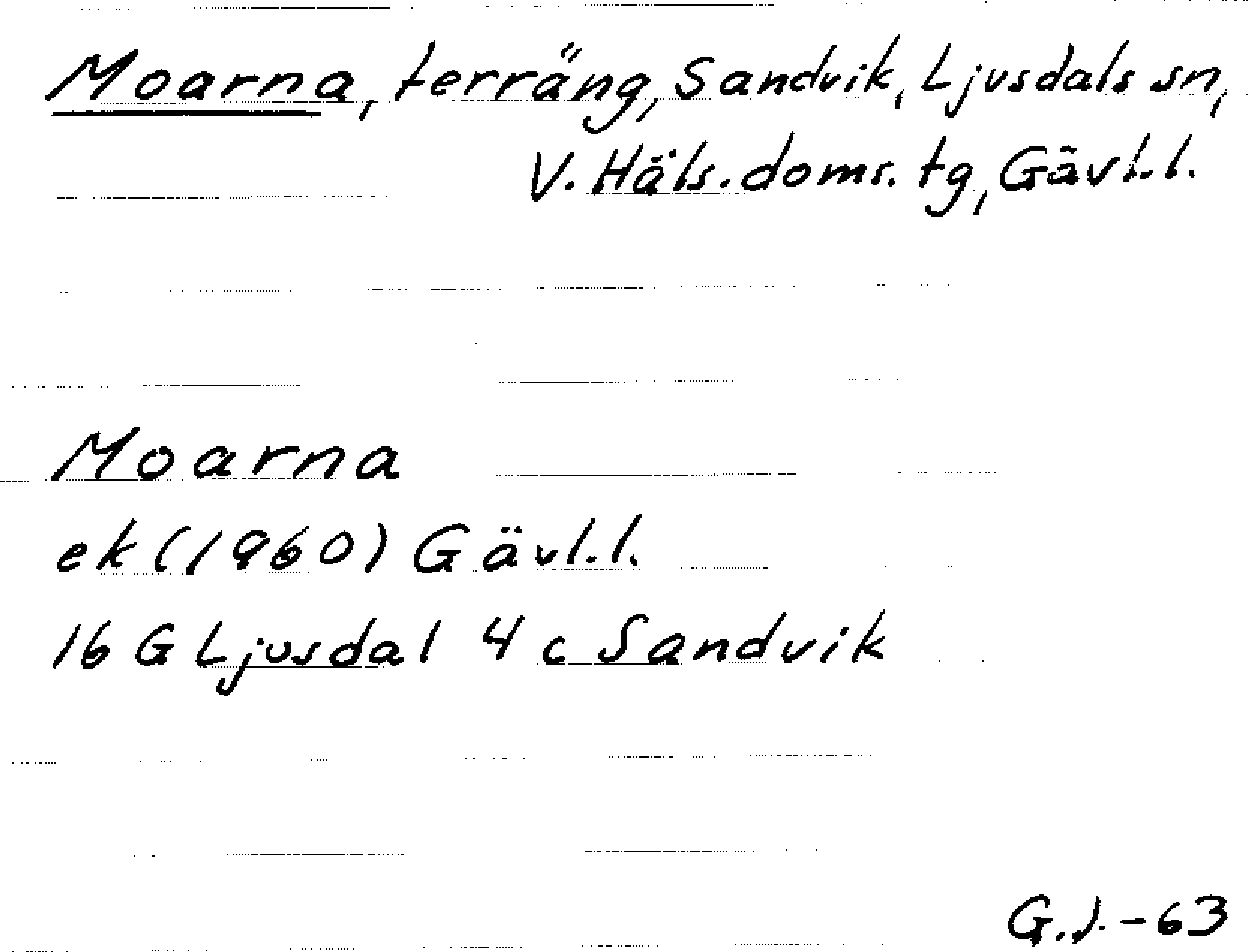 Moarna, terräng, Sandvik, Ljusdals sn,
V. Häls. doms. tg, Gävl.l.
Moarna
ek (1960) Gävl.l.
16 G Ljusdal 4 c Sandvik
G.J. -63